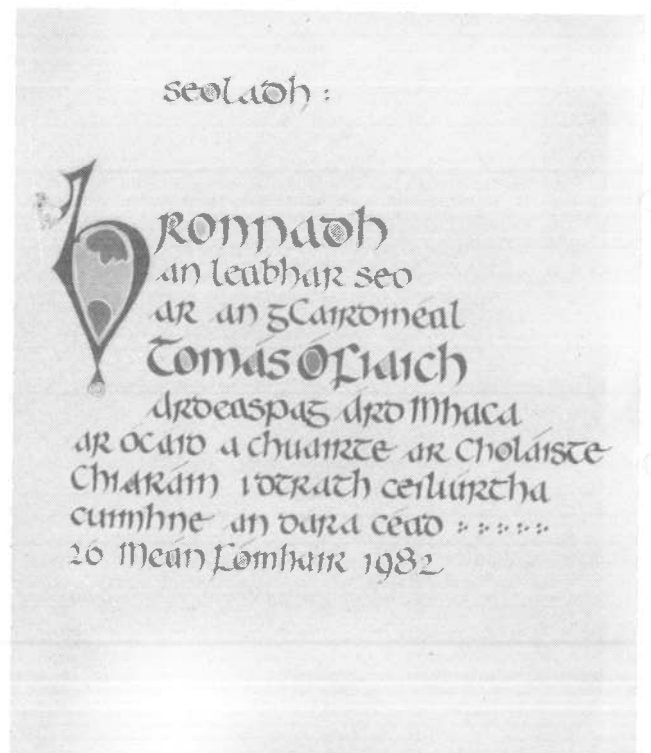 seoladh :
bronnadh
an leabhar seo
ar an gCairdinéal
Tomás Ó Fiaich
Árdeaspag Árd Mhaca
ar ócáid a chuairte ar Choláiste
Chiaráin i dtráth ceiluírtha
cuimhne an dara céad :·:·:·:·:
26 Meán Fómhair 1982